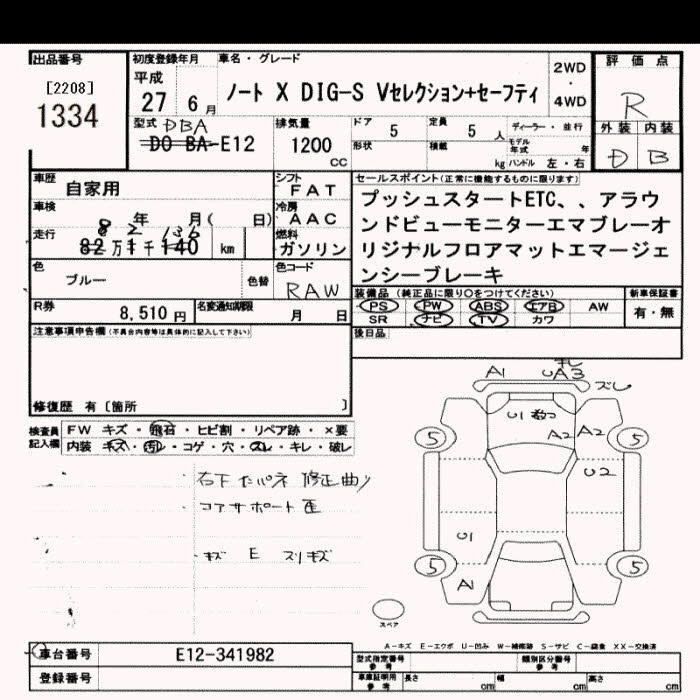 出品番号
[2208]
1334
初度登録年月
平成
27 6月
車名・グレード
ノート X DIG-S Vセレクション+セーフティ
2WD
・
4WD
評価点
R
外装 内装
D B
型式 DBA
DO BA-E12
排気量
1200
cc
ドア 5
定員 5 人
形状
積載 kg
ディーラー・並行
モデル年式 年
ハンドル 左・右
車歴
自家用
シフト
FAT
車検
8 年 2 月( 日)
冷房
AAC
走行
82万1千140 km
136
燃料
ガソリン
色
ブルー
色替
色コード
RAW
R券
8,510円
名変通知期限
月 日
セールスポイント(正常に機能するものに限ります)
プッシュスタートETC、、アラウ
ンドビューモニターエマブレーオ
リジナルフロアマットエマージェ
ンシーブレーキ
装備品(純正品に限り○をつけてください)
PS PW ABS エアB AW
SR ナビ TV カワ
新車保証書
有・無
後日品
注意事項申告欄(不具合内容等は具体的に記入して下さい)
修復歴 有〔箇所 〕
検査員
記入欄
FW キズ・飛石・ヒビ割・リペア跡・×要
内装 キズ・汚レ・コゲ・穴・スレ・キレ・破レ
右下
修正曲り
コアサポート歪
キズ E スリキズ
A1
UA3
ズレ
U1
A2
A2
U2
U1
A1
5
5
5
5
スペア
A-キズ E-エクボ U-凹み W-補修跡 S-サビ C-腐食 XX-交換済
車台番号
E12-341982
登録番号
型式指定番号
参考
類別区分番号
参考
車庫証明用
参考
長さ cm
幅 cm
高さ cm